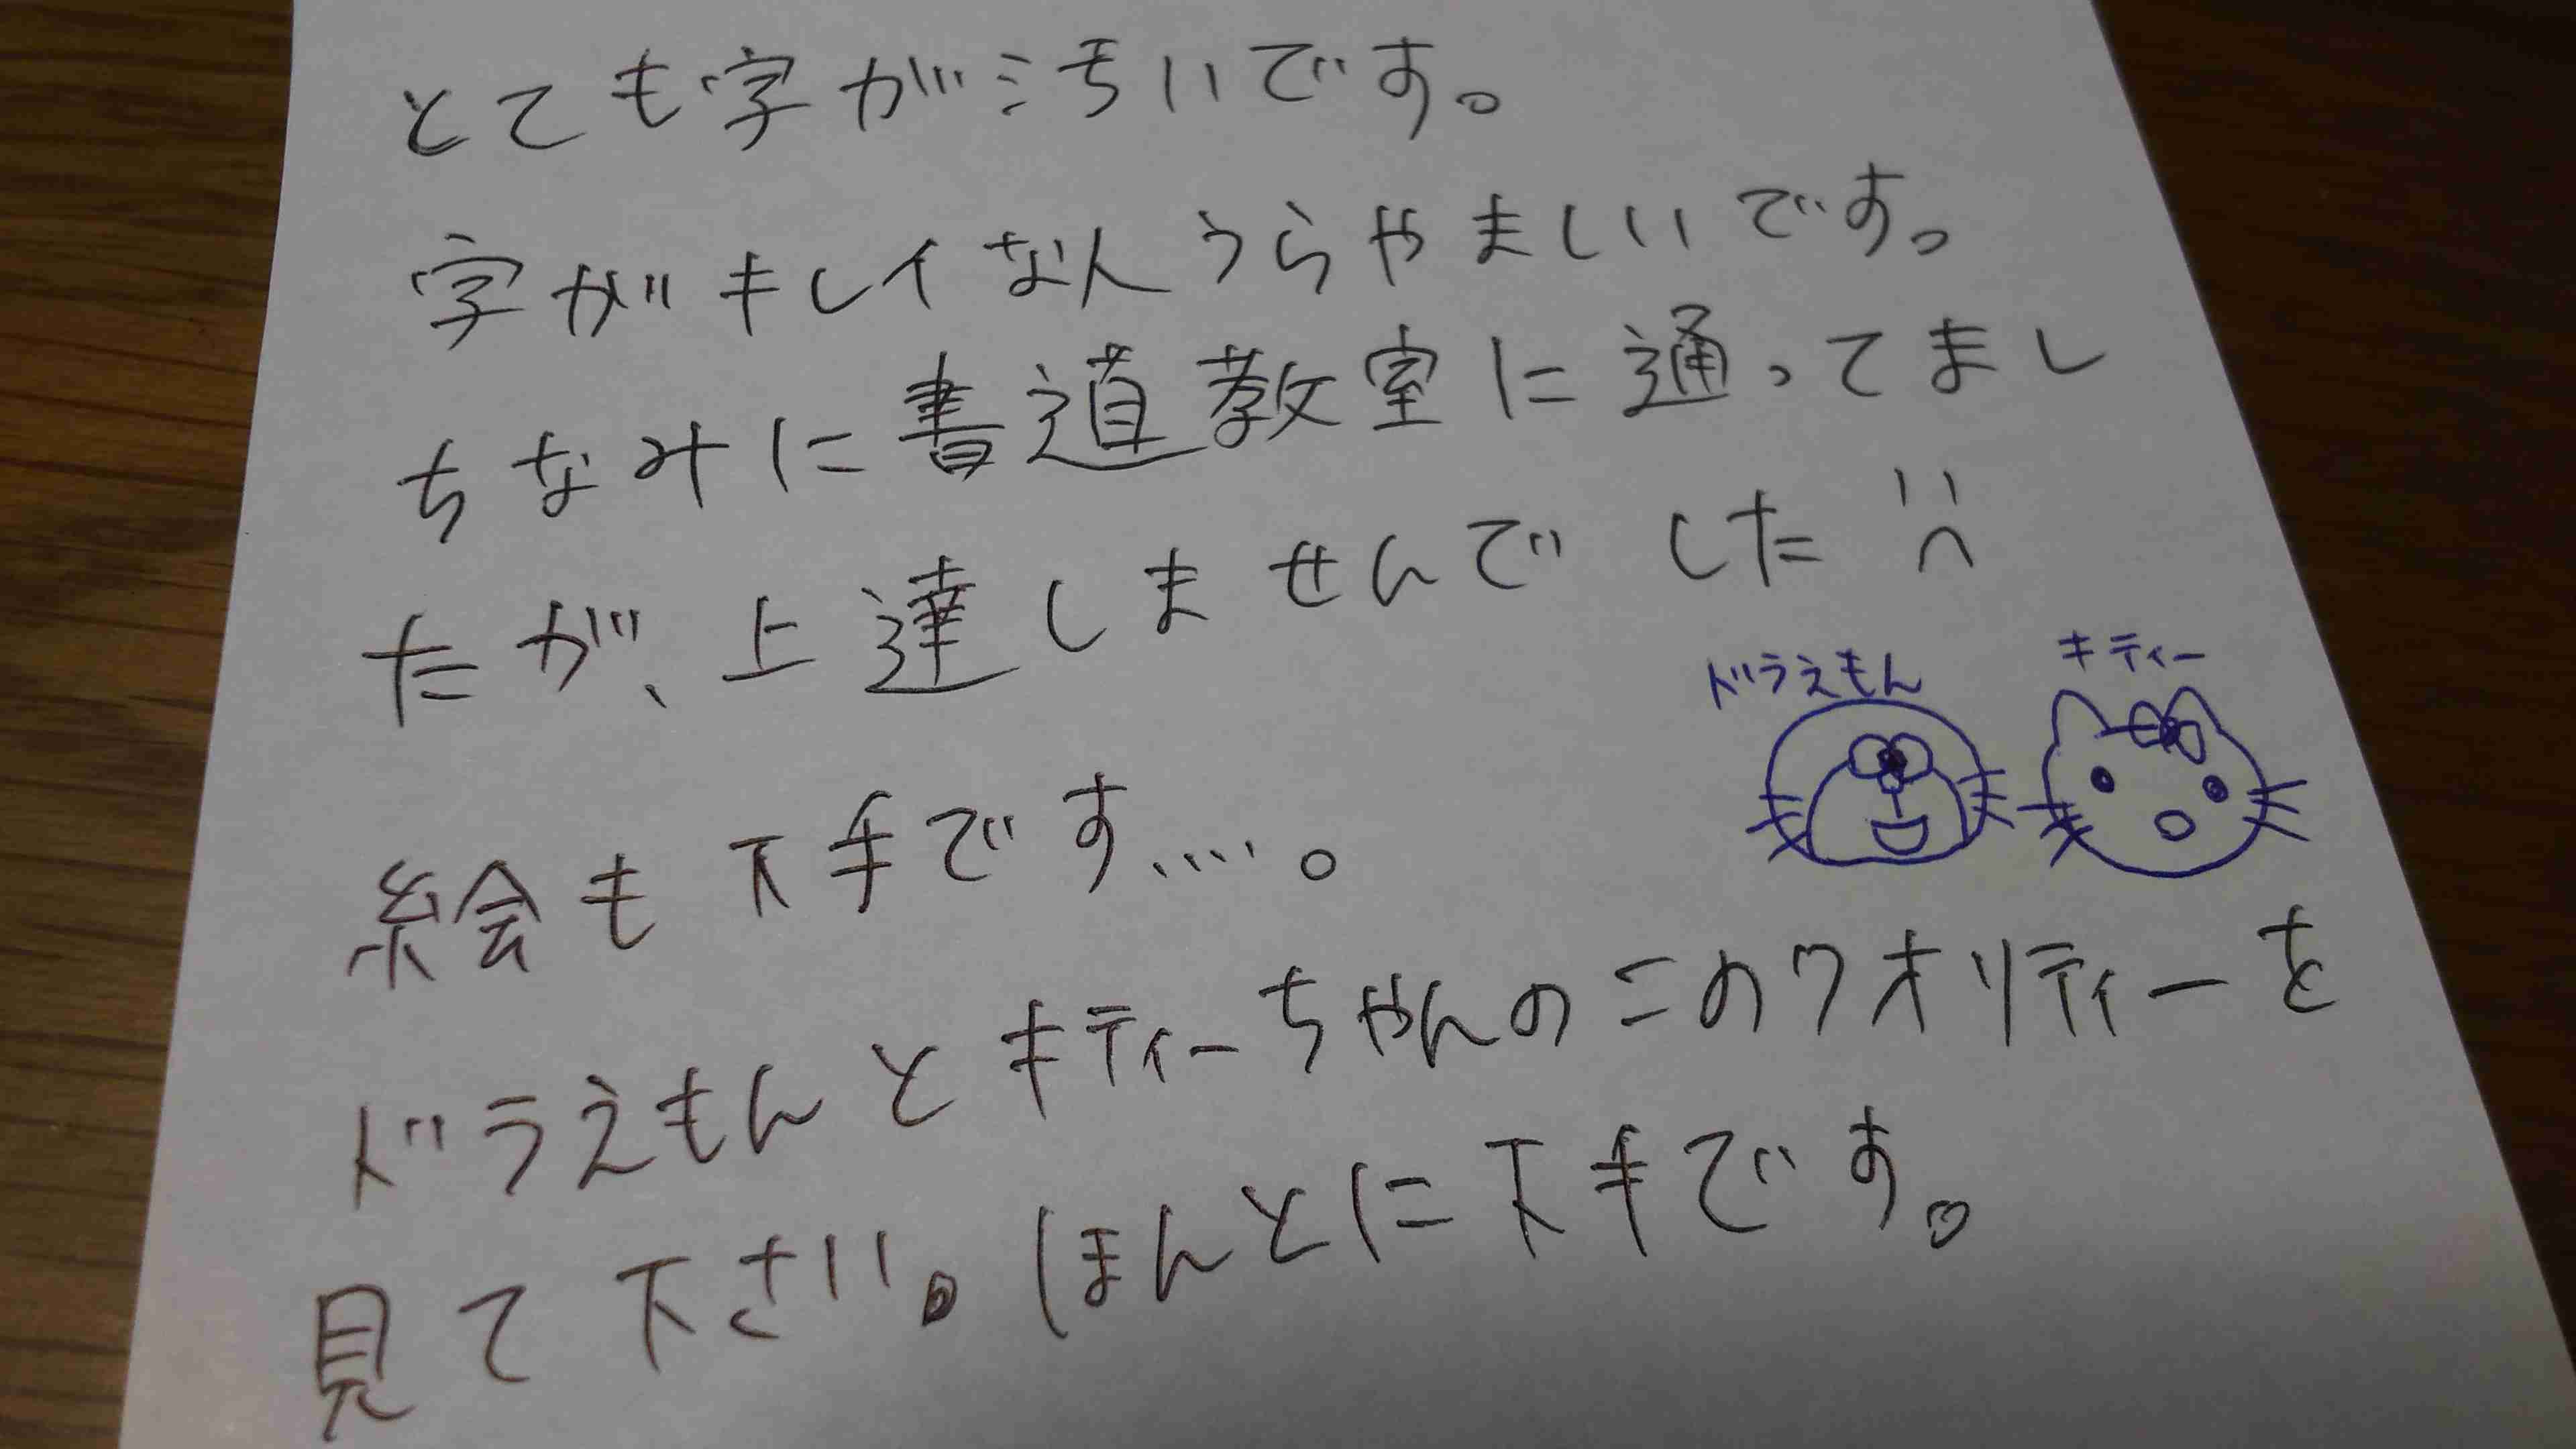 とても字が汚いです。
字がキレイな人うらやましいです。
ちなみに書道教室に通ってまし
たが、上達しませんでした
ドラえもん
キティー
絵も下手です....。
ドラえもんとキティーちゃんのこのクオリティーを
見て下さい。ほんとに下手です。